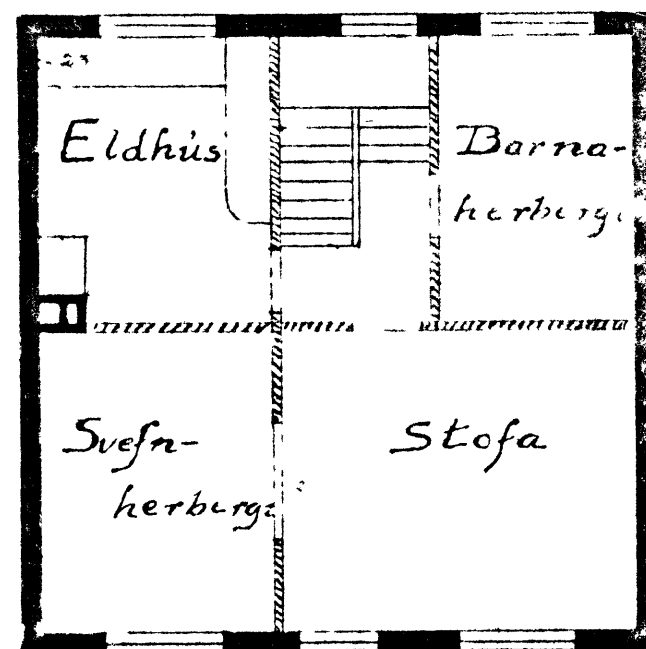 23
Eldhús
Barna-
herbergi
Svefn-
herbergi
Stofa